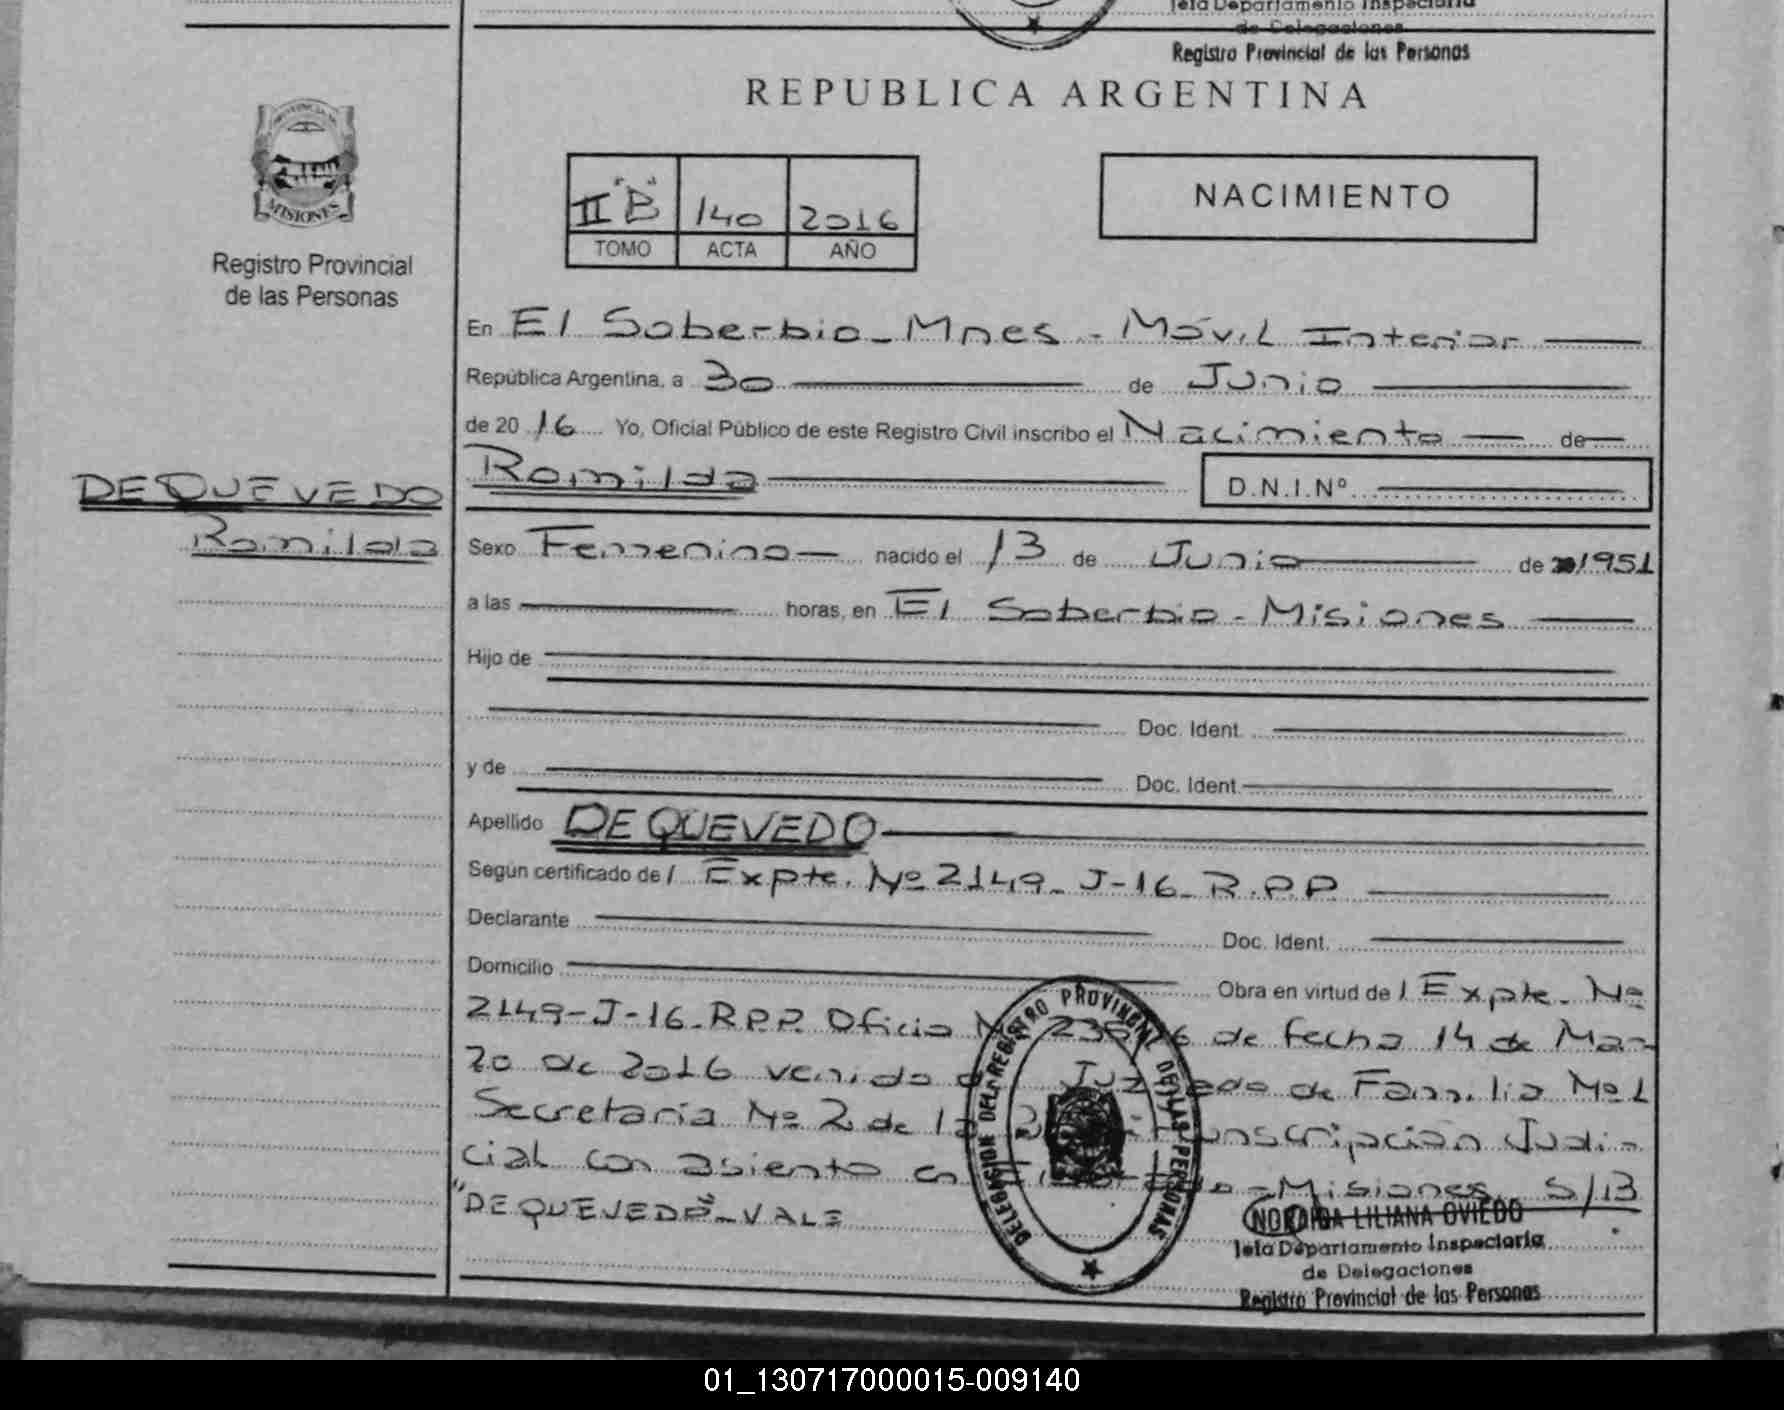 Jefa Departamento Inspectoria
de Delegaciones
Registro Provincial de las Personas
REPUBLICA ARGENTINA
MISIONES
Registro Provincial
de las Personas
II "B" 140 2016
TOMO ACTA AÑO
NACIMIENTO
En El Soberbio - Mnes - Móvil Interior
República Argentina, a 30 de Junio
de 20 16 Yo, Oficial Público de este Registro Civil inscribo el Nacimiento de
DE QUEVEDO
Romilda
Romilda
D.N.I.Nº
Sexo Femenino nacido el 13 de Junio de 1951
a las horas, en El Soberbio - Misiones
Hijo de
Doc. Ident.
y de Doc. Ident.
Apellido DE QUEVEDO
Según certificado de / Expte. Nº 2149-J-16-R.P.P
Declarante Doc. Ident.
Domicilio Obra en virtud de / Expte. Nº
2149-J-16-R.P.P. Oficio de fecha 14 de Mar-
zo de 2016 venido Juzgado de Familia Nº 1
Secretaria Nº 2 de la Circunscripción Judi-
cial con asiento en - Misiones. S/B
"DE QUEVEDO" - VALE
DELEGACION DEL REGISTRO PROVINCIAL DE LAS PERSONAS
LILIANA OVIEDO
Jefa Departamento Inspectoria
de Delegaciones
Registro Provincial de las Personas
01_130717000015-009140